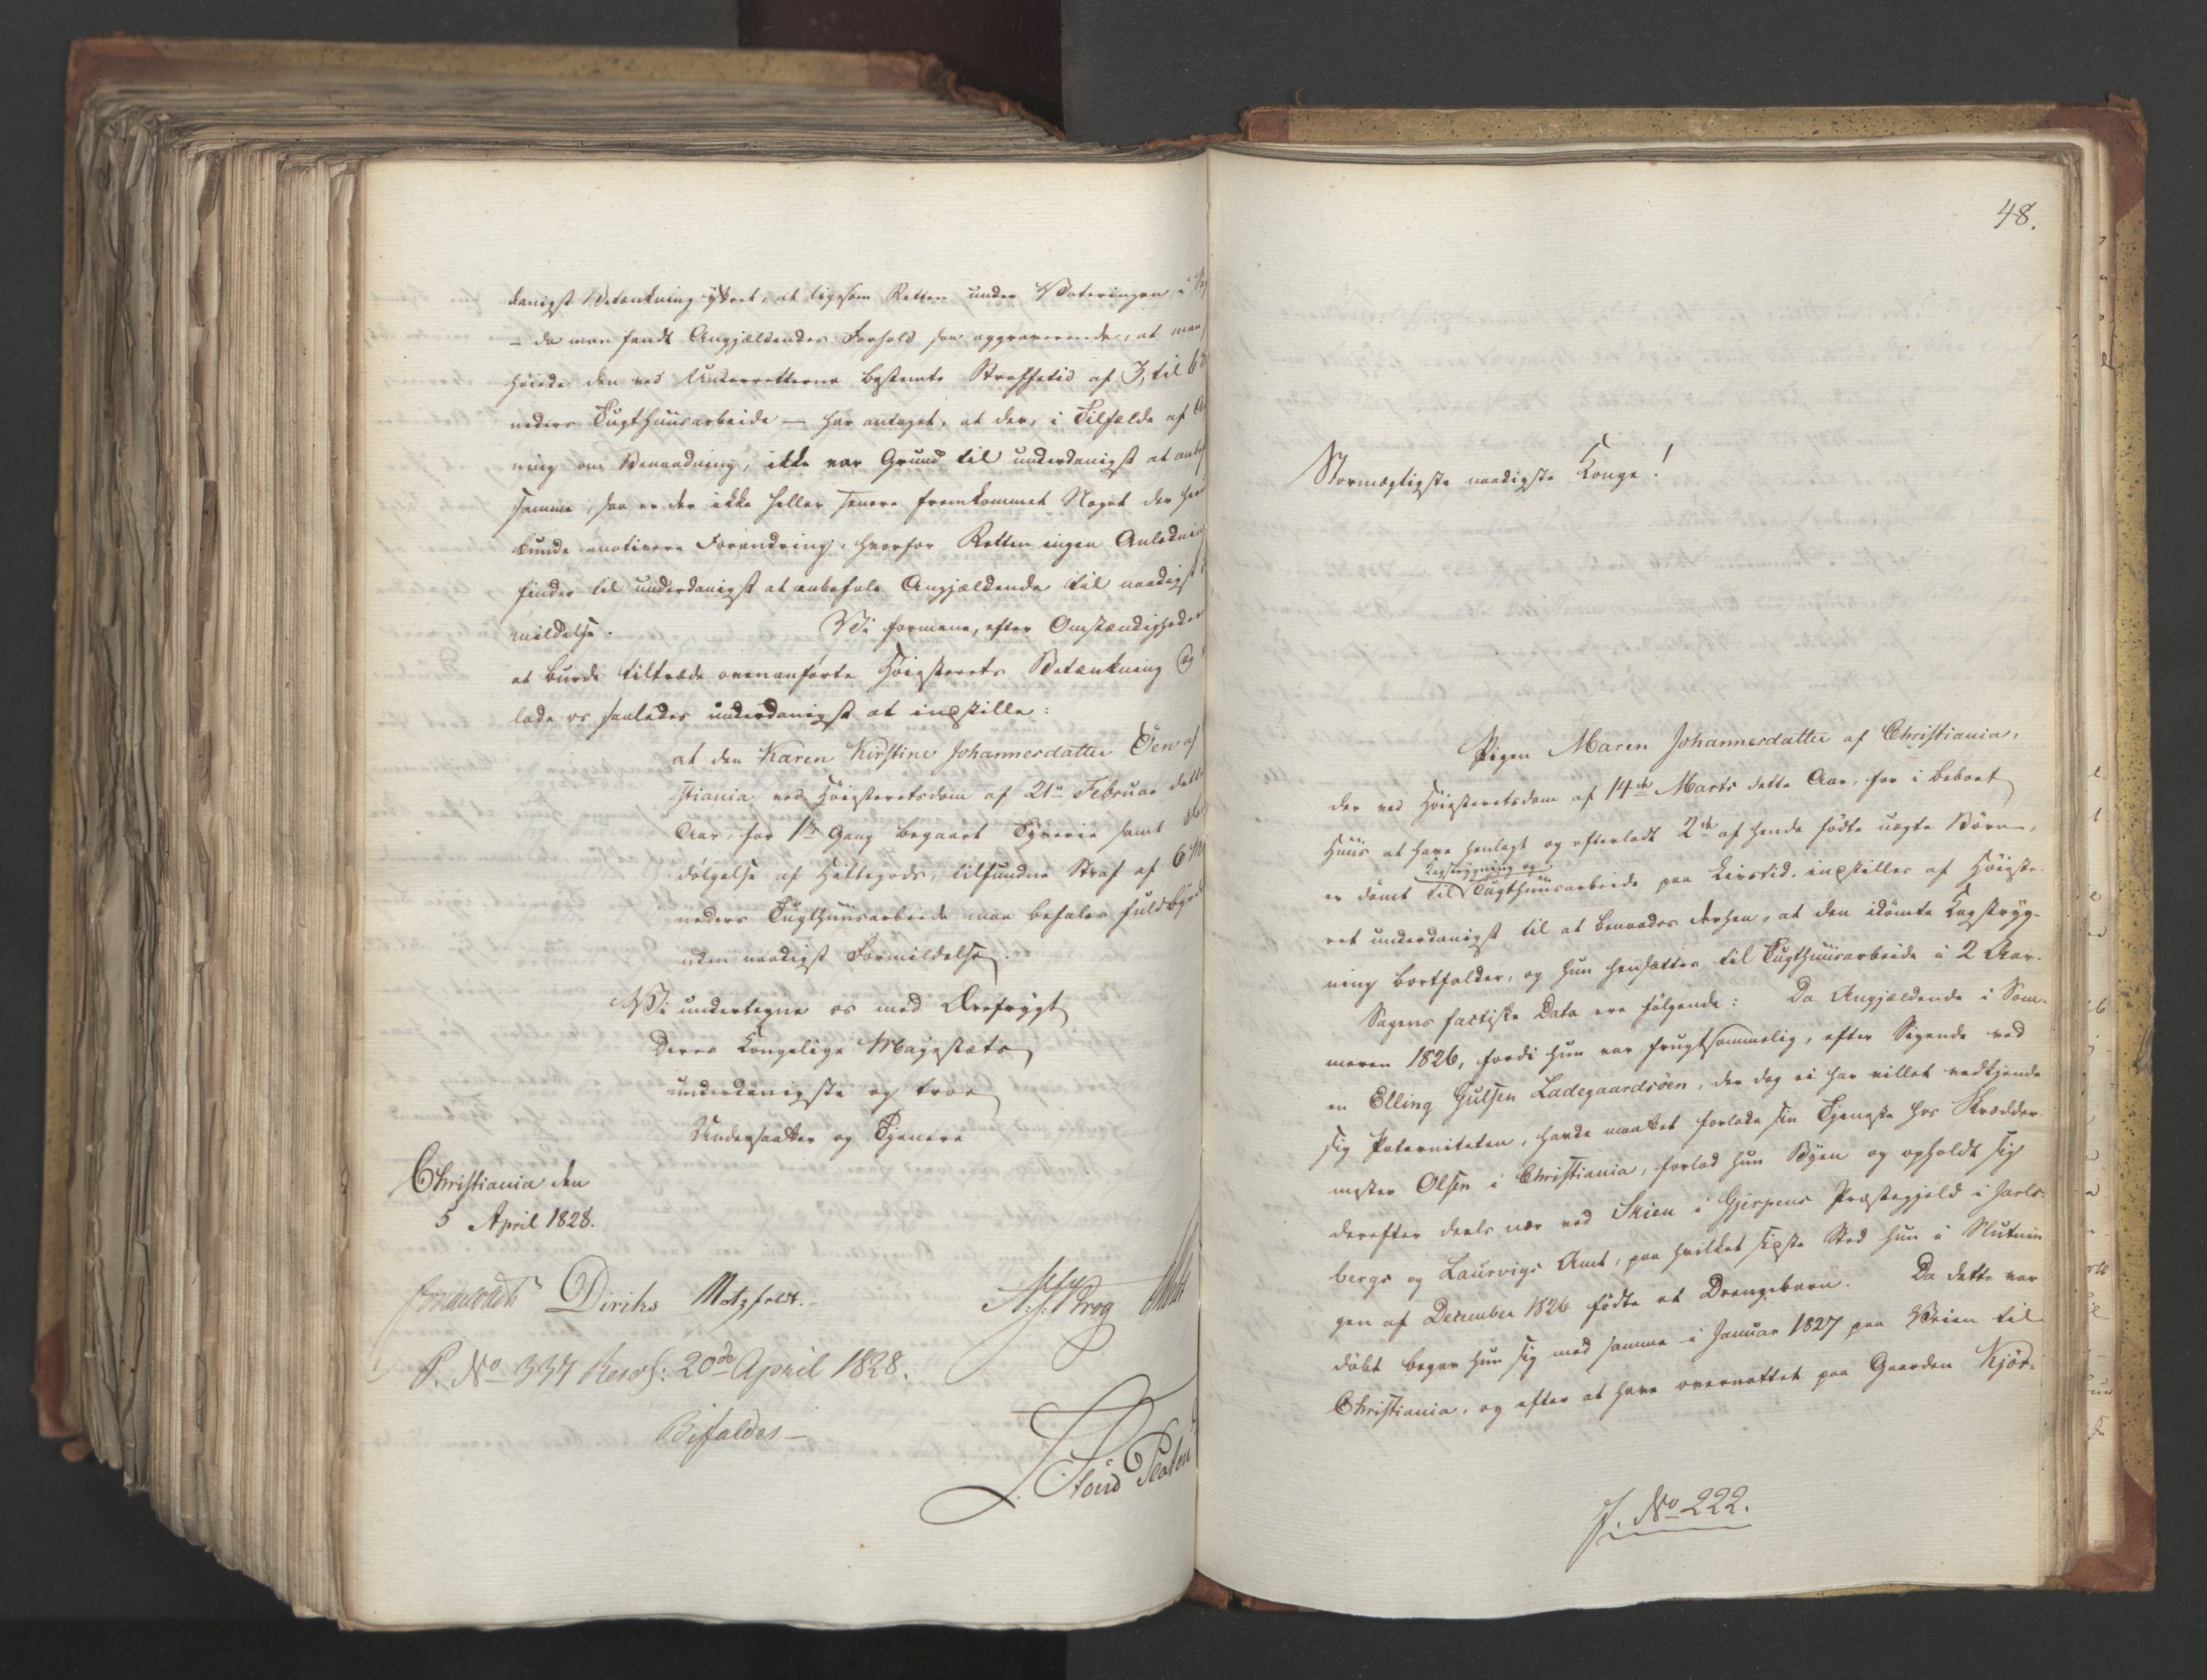 danigst Betænkning yttret, at ligesom Retten under Voteringen i
– da man fandt Angjældendes Forhold saa aggraverende, at man
høiede den ved Underretterne bestemte Straffetid af 3, til 6
neders Tugthuusarbeide — har antaget, at der, i Tilfælde af
ning om Benaadning, ikke var Grund til underdanigst at anbe
samme, saa er der ikke heller senere fremkommet Noget der heri
kunde motivere Forandring, hvorfor Retten ingen Anledning
finder til underdanigst at anbefale Angjældende til naadigst
mildelse. Vi formene, efter Omstændighederne
at burde tiltræde ovenanførte Høiesterets Betænkning og
lade os saaledes underdanigst at indstille:
at den Karen Kirstine Johannesdatter Øen af
stiania ved Høiesteretsdom af 21de Februar dette
Aar, for 1ste Gang begaaet Tyverie samt
dølgelse af Hittegods, tilfundne Straf af 6 M
neders Tugthuusarbeide maa befales fuldbyrdet
uden naadigst Formildelse.
Vi undertegne os med Ærefrygt
Deres Kongelige Majestæts
underdanigste og troe
Undersaatter og Tjenere
Christiania den
5 April 1828.
Diriks Motzfeldt. Krog
P. No 337 Resol: 20de April 1828.
Bifaldes –
Platen
48.
Stormægtigste naadigste Konge!
Pigen Maren Johannesdatter af Christiania,
der ved Høiesteretsdom af 14de Marts dette Aar, for i beboet
Huus at have henlagt og efterladt 2de af hende fødte uægte Børn,
Kagstrygning og
er dømt til Tugthuusarbeide paa Livstid, indstilles af Høieste-
ret underdanigst til at benaades derhen, at den idømte Kagstryg-
ning bortfalder, og hun hensættes til Tugthuusarbeide i 2 Aar.
Sagens factiske Data ere følgende: Da Angjældende i Som-
meren 1826, fordi hun var frugtsommelig, efter Sigende ved
en Elling Gulsen Ladegaardsøen, der dog ei har villet vedkjende
sig Paterniteten, havde maattet forlade sin Tjeneste hos Skrædder-
mester Olsen i Christiania, forlod hun Byen og opholdt sig
derefter deels nær ved Skien i Gjerpens Præstegjeld i Jarls-
bergs og Laurvigs Amt, paa hvilket sidste Sted hun i Slutnin-
gen af December 1826 fødte et Drengebarn. Da dette var
døbt begav hun sig med samme i Januar 1827 paa Veien til
Christiania, og efter at have overnattet paa Gaarden Kjør-
J. No 222.